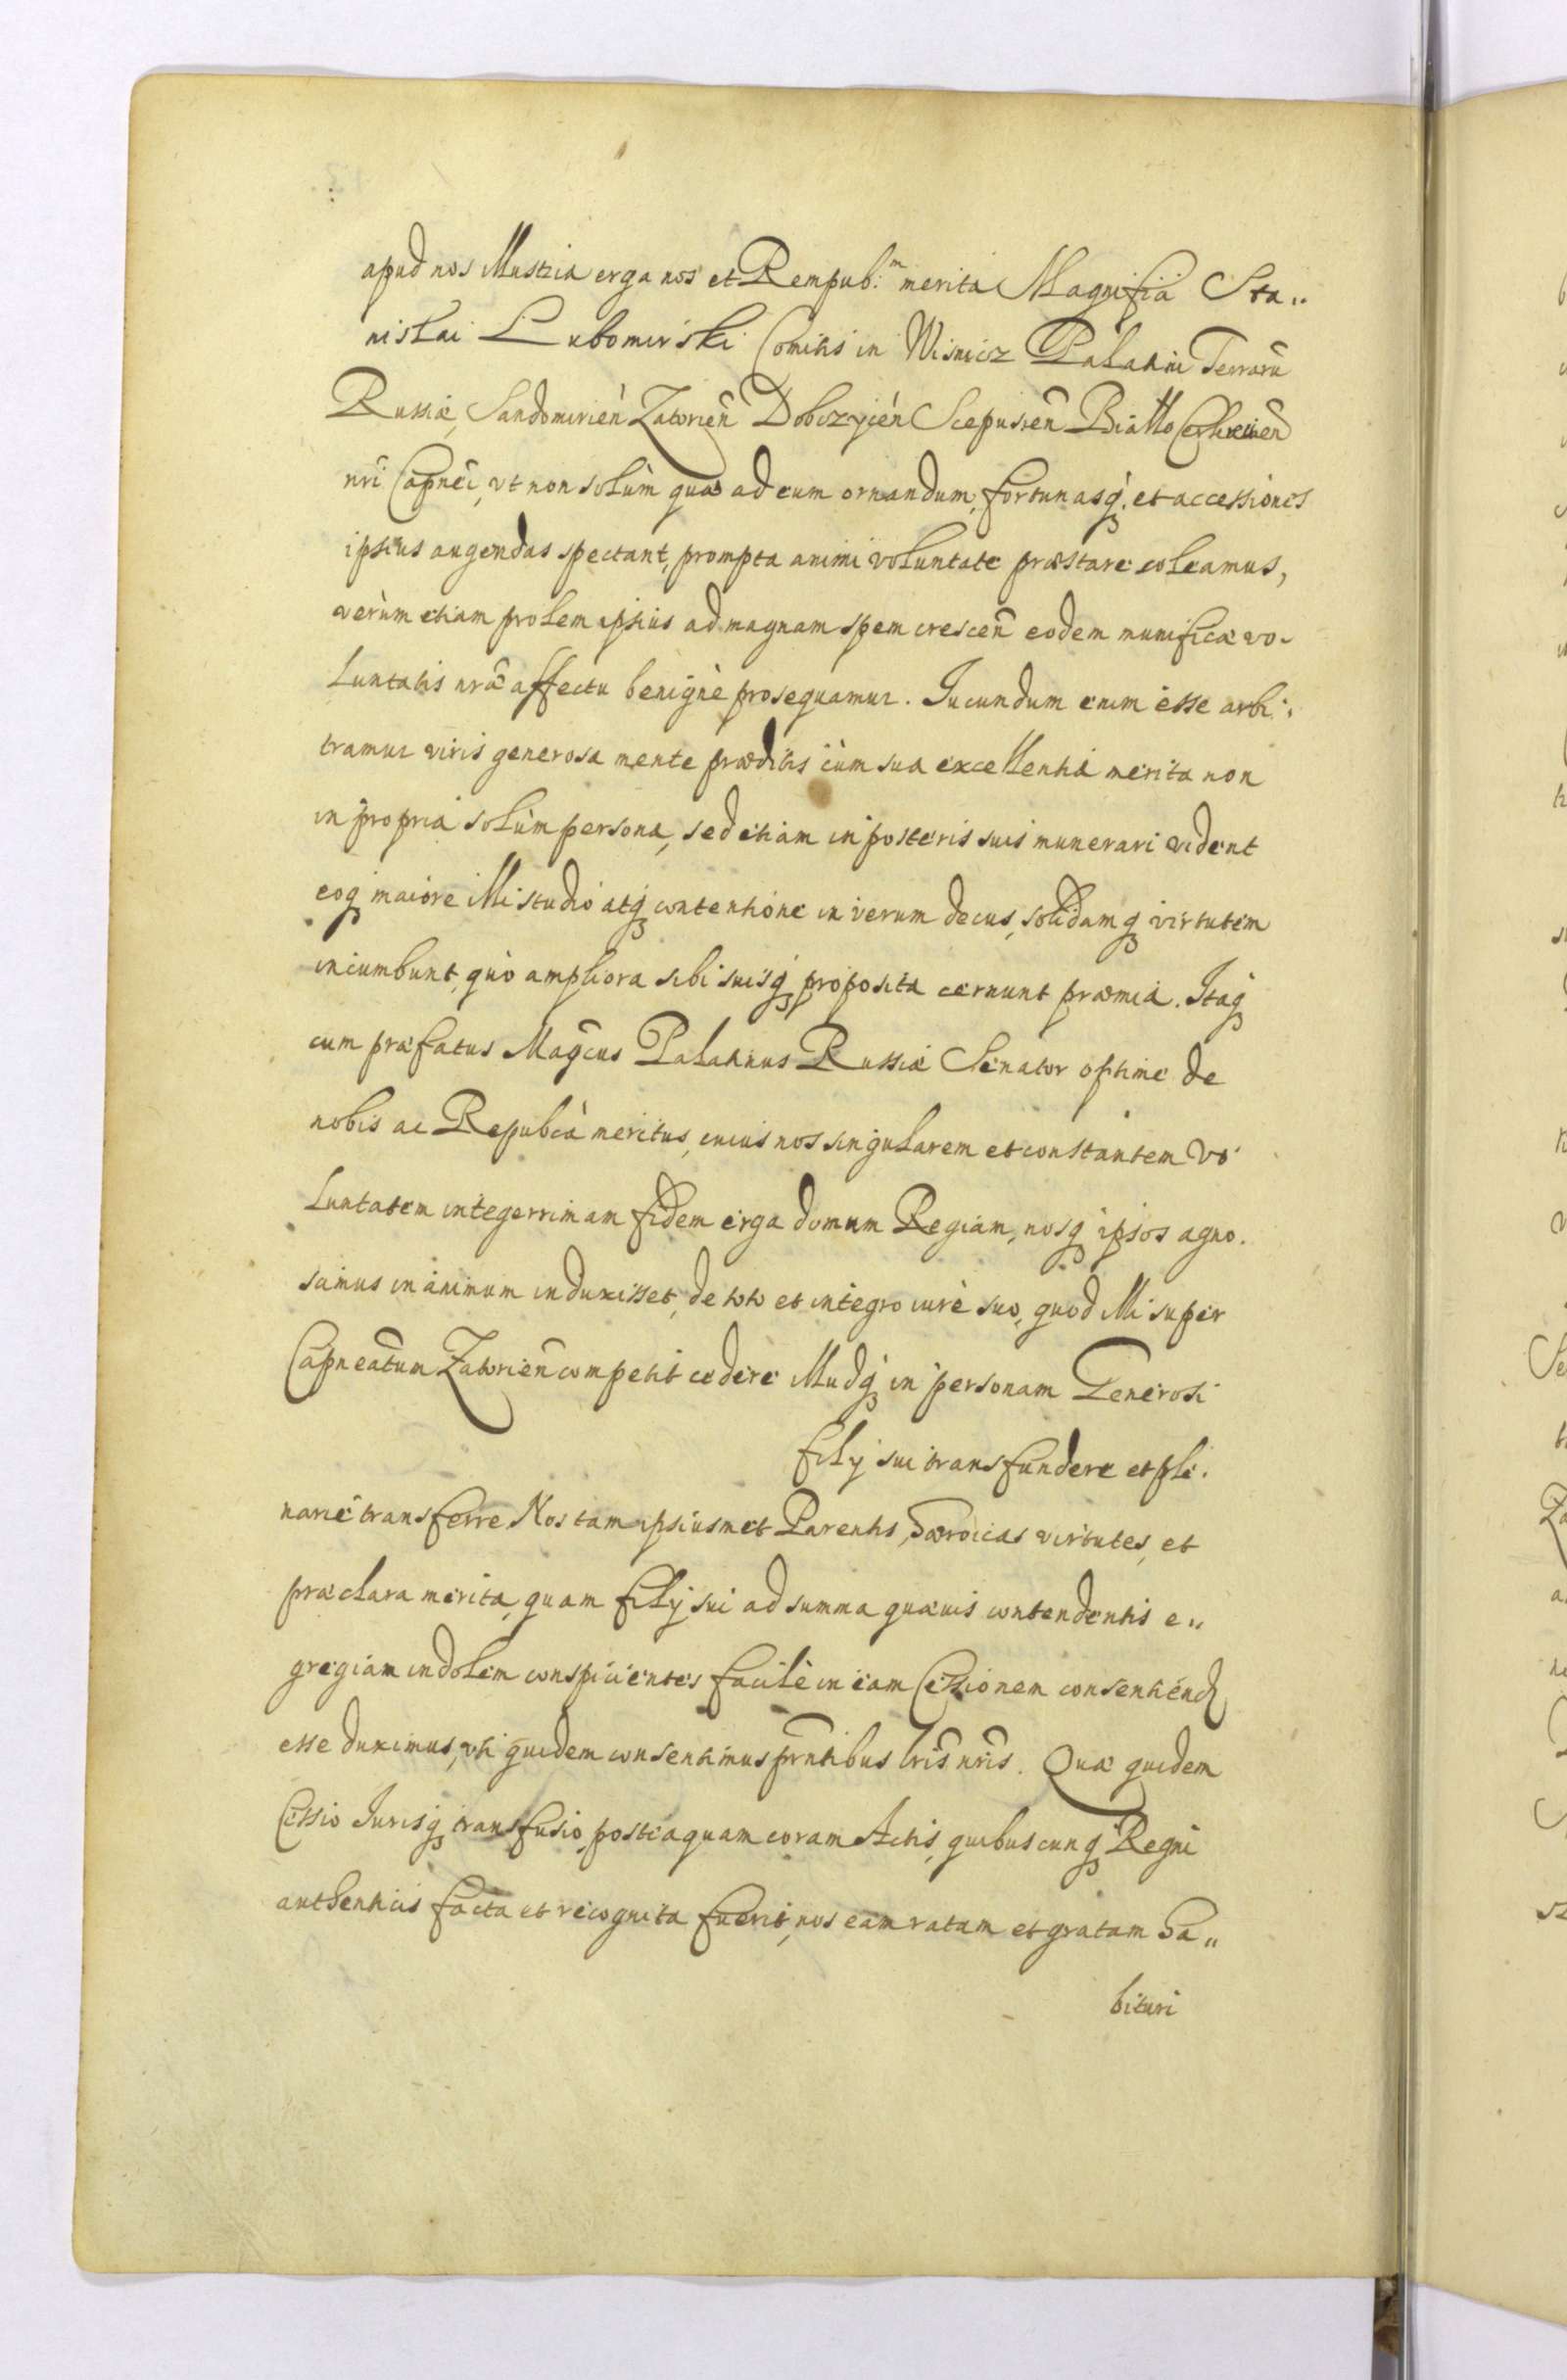 apud nos illustria erga nos et Rempub:m merita Magnifici Sta„
nislai Lubomirski Comitis in Wisnicz Palatini Terrarū
Russiæ, Sandomirień Zatorień Dobczycień Scepusień Biallo Cerkiewień
nrī Capneī, vt non solùm quæ ad eum ornandum, fortunasq; et accessiones
ipsius augendas spectant, prompta animi voluntate præstare soleamus,
verùm etiam prolem ipsius ad magnam spem crescen̄ eodem munificæ vo-
luntatis nrǣ affectu benignè prosequamur. Jucundum enim esse arbi:
tramur viris generosa mente præditis cùm sua excellentiâ merita non
in propriâ solùm persona, sed etiam in posteris suis munerari vident
eoq; maiore illi studio atq; contentione in verum decus, solidamq; virtutem
incumbunt, quò ampliora sibi suisq; proposita cernunt præmia. Itaq;
cum præfatus Magcus Palatinus Russiæ Senator optime de
nobis ac Repubcâ meritus, cuius nos singularem et constantem vo
luntatem integerrimam fidem erga domum Regiam, nosq; ipsos agno.
scimus in animum induxisset, de toto et integro iure suo, quod illi super
Capneatum Zatorień competit cedere illudq; in personam Generosi
filÿ sui transfundere et ple.
nariè transferre Nos tam ipsiusmet Parentis, hæroicas virtutes, et
præclara merita, quam filÿ sui ad summa quævis contendentis e„
gregiam indolem conspicientes facilè in eam Cessionem consentiend
esse duximus, vti quidem consentimus prntibus lris nris. Quæ quidem
Cessio Jurisq; transfusio, posteaquam coram Actis, quibuscunq; Regni
authenticis facta et recognita fuerit, nos eam ratam et gratam ha„
bituri